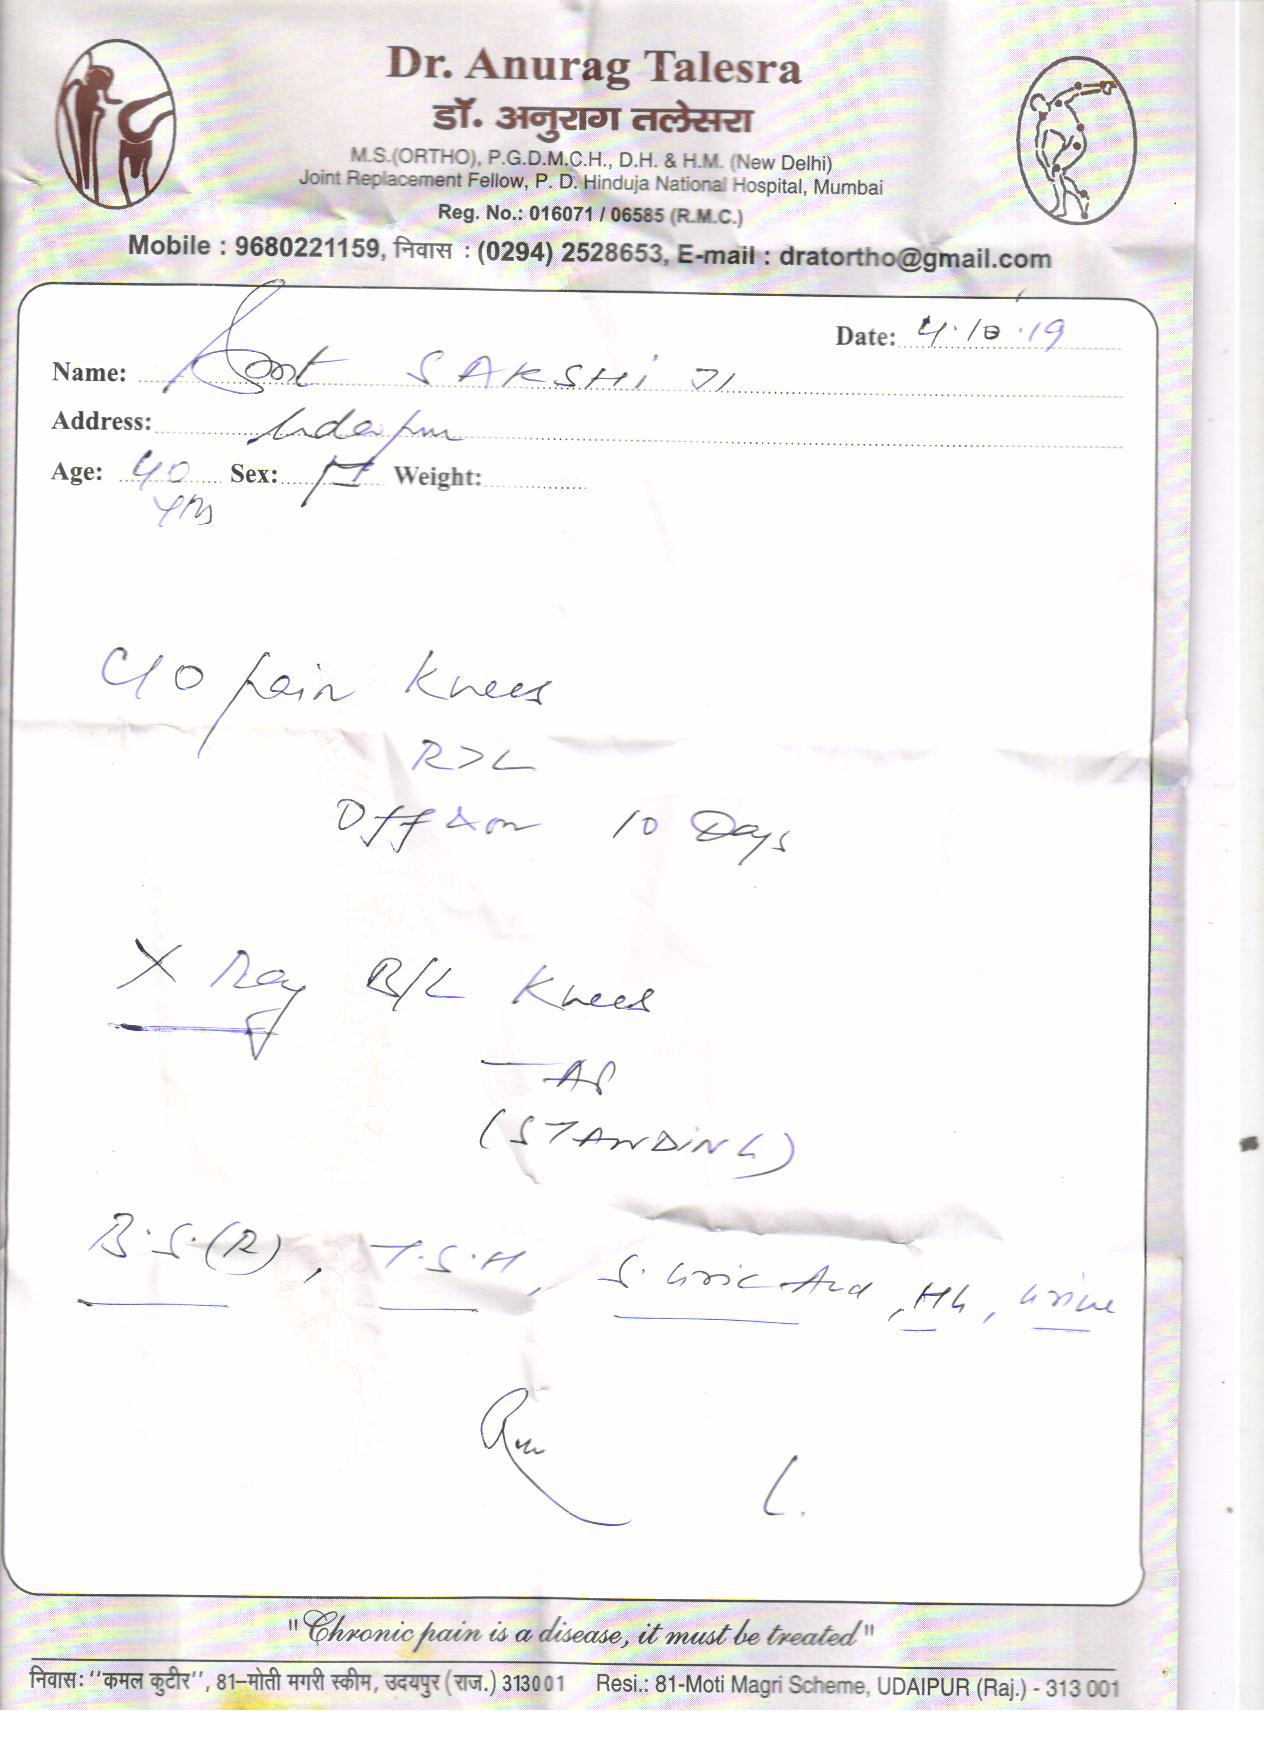 Dr. Anurag Talesra
डॉ. अनुराग तलेसरा
M.S.(ORTHO), P.G.D.M.C.H., D.H. & H.M. (New Delhi)
Joint Replacement Fellow, P. D. Hinduja National Hospital, Mumbai
Reg. No.: 016071 / 06585 (R.M.C.)
Mobile : 9680221159, निवास : (0294) 2528653, E-mail : dratortho@gmail.com
Date: 4.10.19
Name: SAKSHI JI
Address: Udaipur
Age: 40 Sex: Weight:
yrs
C/O pain Knees
R>L
Off & on 10 Days
X Ray B/L Knees
— AP
(STANDING)
B.S.(R), T.S.H, S. Uric Acid, Hb, Urine
"Chronic pain is a disease, it must be treated"
निवास: ''कमल कुटीर'', 81–मोती मगरी स्कीम, उदयपुर (राज.) 313001 Resi.: 81-Moti Magri Scheme, UDAIPUR (Raj.) - 313 001